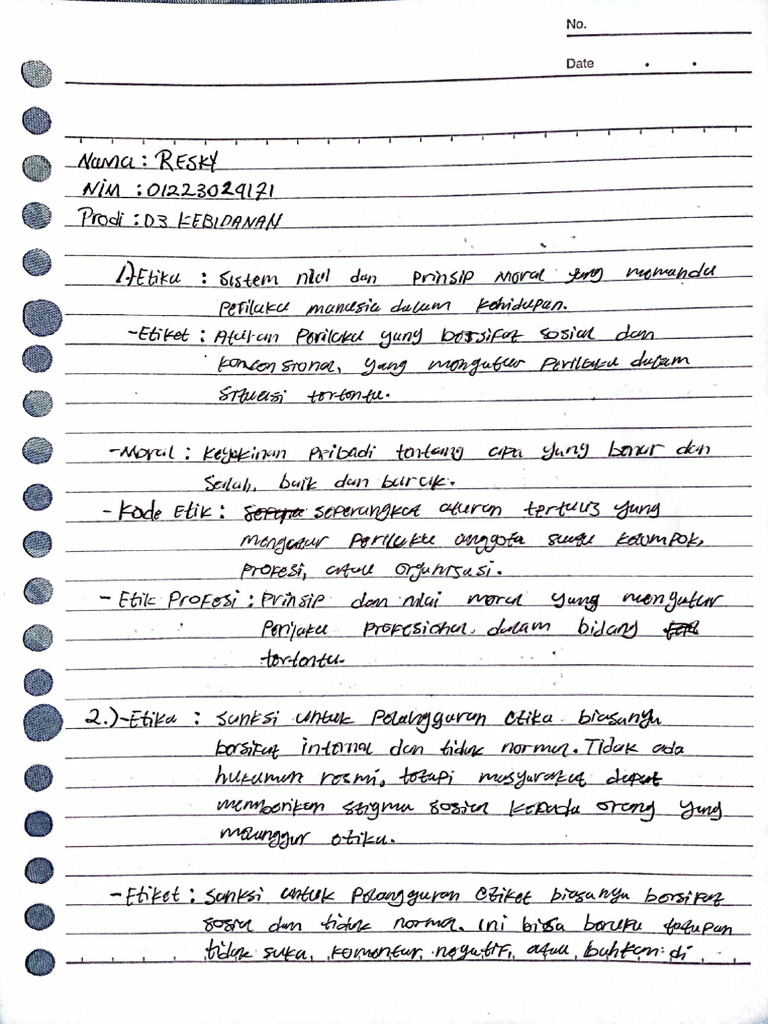 No.
Date
Nama : RESKY
NIM : 01223024171
Prodi : D3 KEBIDANAN
1.) Etika : Sistem nilai dan Prinsip moral yang memandu
Perilaku manusia dalam kehidupan.
- Etiket : Aturan Perilaku yang bersifat sosial dan
konvensional, yang mengatur Perilaku dalam
situasi tertentu.
- Moral : Keyakinan Pribadi tentang apa yang benar dan
Salah, baik dan buruk.
- Kode Etik : seperangkat aturan tertulis yang
mengatur Perilaku anggota suatu kelompok,
Profesi, atau organisasi.
- Etik Profesi : Prinsip dan nilai moral yang mengatur
Perilaku Profesional dalam bidang
tertentu.
2.) - Etika : Sanksi untuk Pelanggaran etika biasanya
bersifat internal dan tidak normal. Tidak ada
hukuman resmi, tetapi masyarakat dapat
memberikan stigma sosial kepada orang yang
melanggar etika.
- Etiket : Sanksi untuk Pelanggaran etiket biasanya bersifat
sosial dan tidak normal. ini bisa berupa tatapan
tidak suka, komentar negatif, atau bahkan di